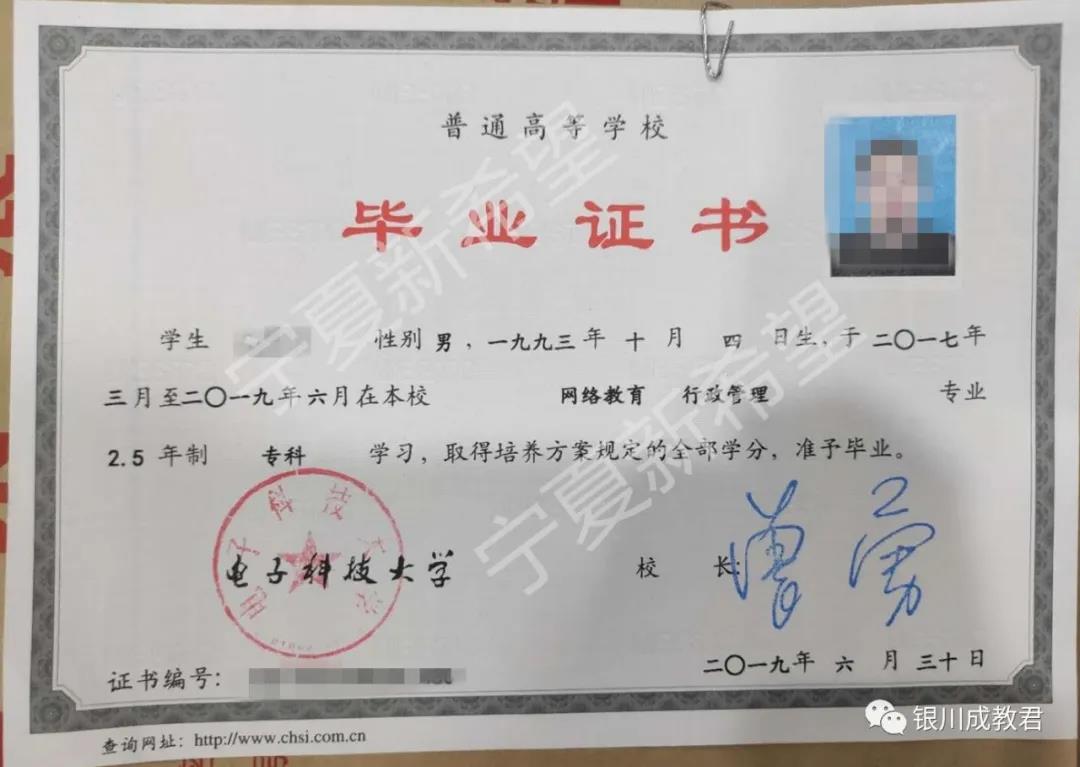 普通高等学校
毕业证书
学生 性别 男，一九九三年 十 月 四 日生，于二〇一七年
三月至二〇一九年六月在本校 网络教育 行政管理 专业
2.5 年制 专科 学习，取得培养方案规定的全部学分，准予毕业。
电子科技大学
电子科技大学
校 长：
曾勇
证书编号：
二〇一九年 六 月 三十日
查询网址：http://www.chsi.com.cn
宁夏新希望
宁夏新希望
银川成教君